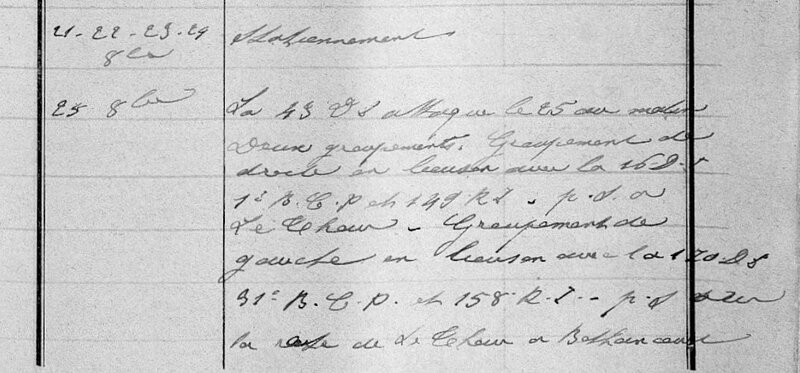 21 - 22 - 23 - 24 Stationnement
8bre
25 8bre La 43 DI attaque le 25 au matin
Deux groupements. Groupement de
droite en liaison avec la 16 D.I
1er B.C.P et 149 R.I - p.d. a
Le Thour - Groupement de
gauche en liaison avec la 170 D.I
31e B.C.P. et 158 R.I - p.d sur
la route de Le Thour a Bethancourt